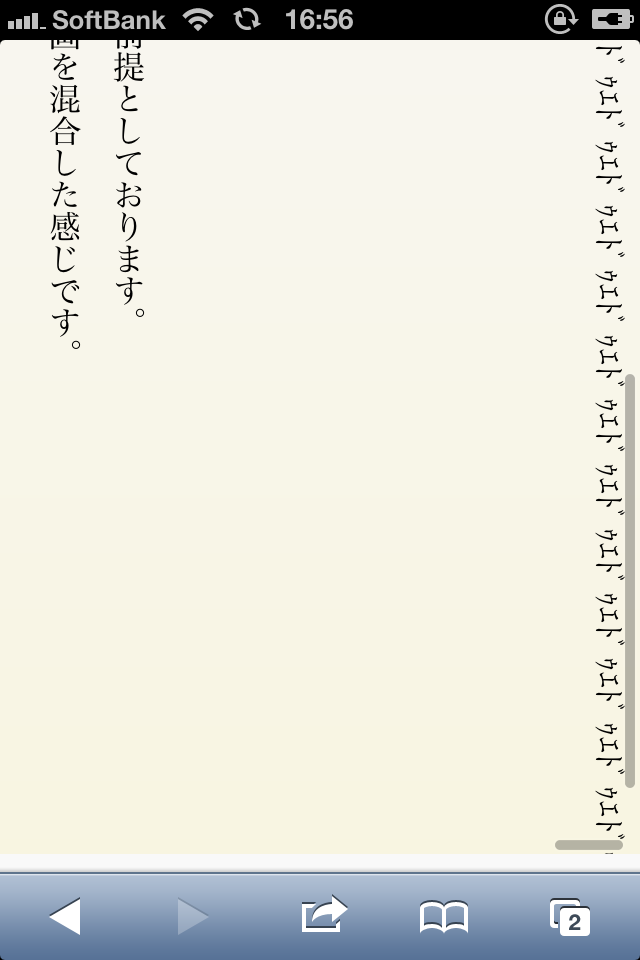 SoftBank 16:56
ﾄﾞ ｳｴﾄﾞ ｳｴﾄﾞ ｳｴﾄﾞ ｳｴﾄﾞ ｳｴﾄﾞ ｳｴﾄﾞ ｳｴﾄﾞ ｳｴﾄﾞ ｳｴﾄﾞ ｳｴﾄﾞ ｳｴﾄﾞ ｳｴﾄﾞ
前提としております。
を混合した感じです。
2